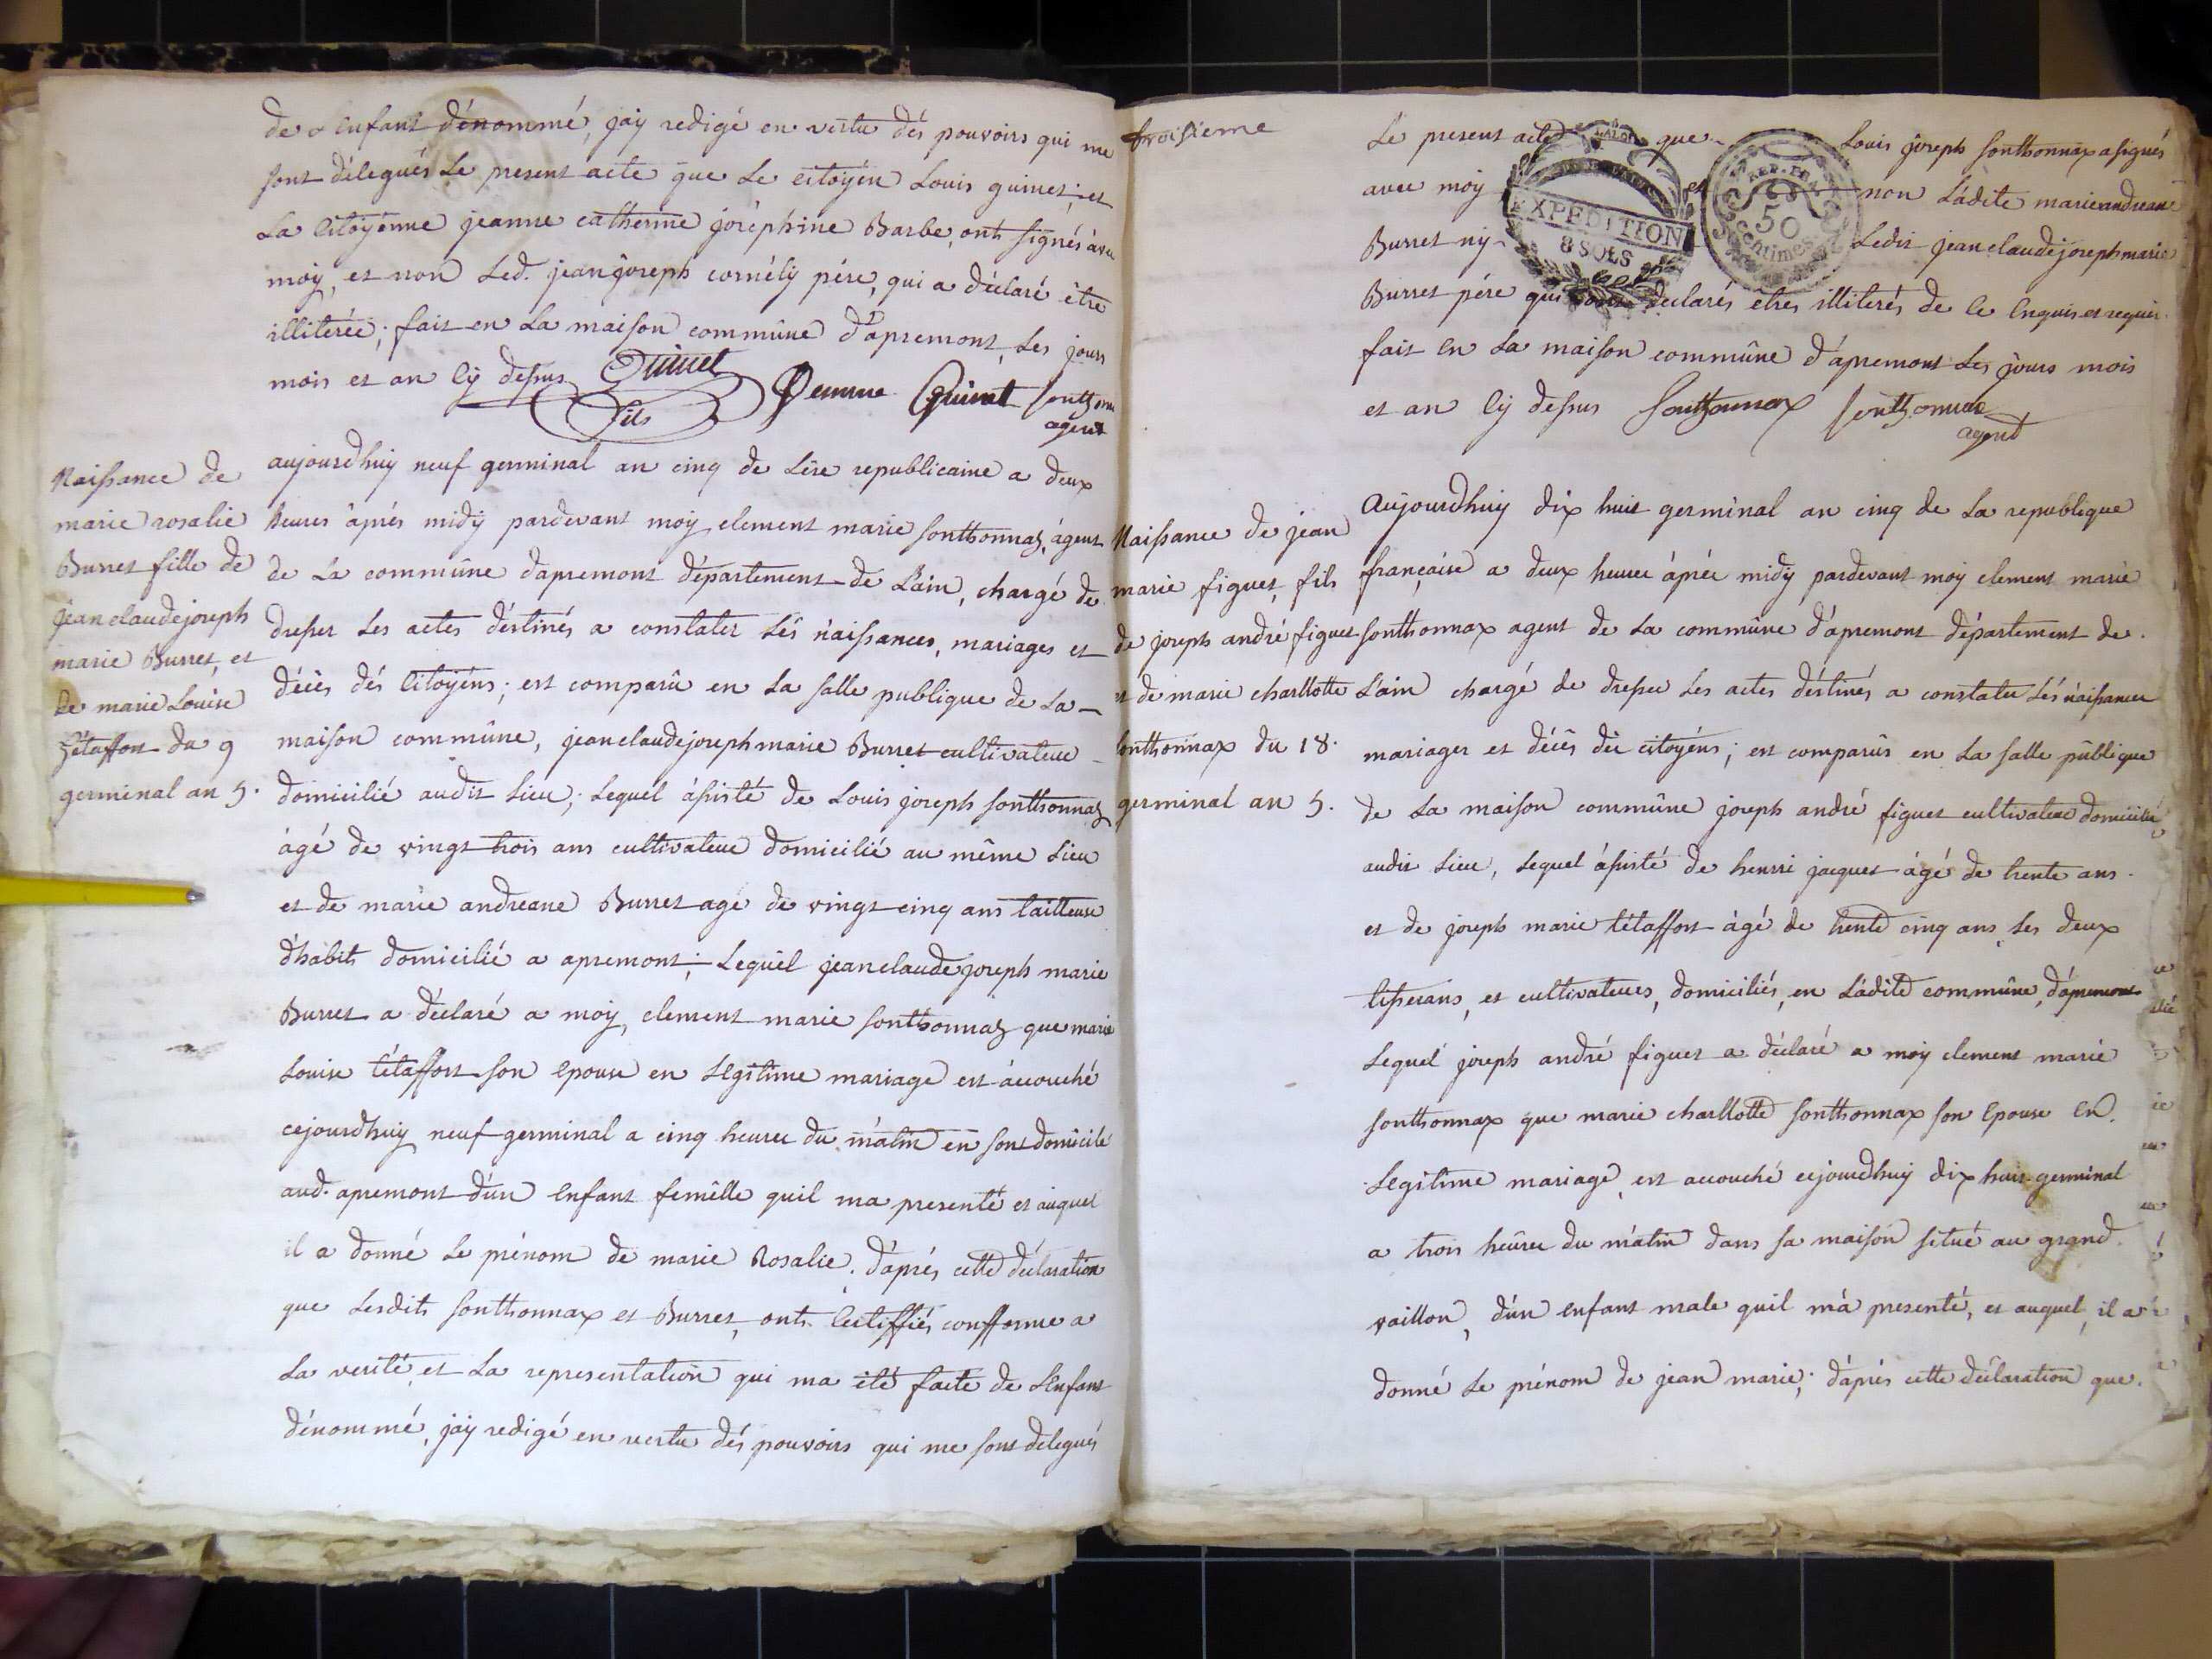 de l'enfant dénommé, jáy redigé en vertu dés pouvoirs qui me
sont délegués Le present acte que Le citoyén Louis guinet; et
La Citoyénne jeanne catherine joréphine Barbe, onts signés avec
moy, et non Led. jean joreph cornély pére, qui a déclaré être
illiterée; fait en La maison commûne d'apremont, Les jours
mois et an Cy dessus Guinet
fils
femme Guinet
Sonthonnax
agent
Naissance de
marie rosalie
Burret fille de
jean claude joreph
marie Burret, et
de marie Louise
Létaffort du 9
germinal an 5.
aujourdhuy neuf germinal an cinq de Lére republicaine a deux
heures áprés midy pardevant moy clement marie Sonthonnax, ágent
de La commûne dapremont département de L'ain, chargé de
dresser Les actes déstinés a constater Lés naissances, mariages et
décès dés Citoyéns; est comparû en La salle publique de La
maison commûne, jean claude joreph marie Burret cultivateur
domicilié audit Lieu; Lequel ásisté de Louis joreph Sonthonnax
ágé de vingt trois ans cultivateur domicilié au même Lieu
et de marie andreane Burret agé de vingt cinq ans tailleuse
d'habits domicilié a apremont; Lequel jean claude joreph marie
Burret a déclaré a moy, clement marie Sonthonnax que marie
Louise Létaffort son Epouse en Légitime mariage est áccouché
cejourdhuy neuf germinal a cinq heures du matin en sont domicile
aud. apremont d'un Enfant femêlle quil ma presenté et auquel
il a donné Le prénom de marie Rosalie. d'áprés cette déclaration
que Lesdits Sonthonnax et Burret, onts Certiffiés confforme a
La verité, et La representation qui ma été faite de L'Enfant
dénommé, jáy redigé en vertu dés pouvoirs qui me sont delegués
troisieme
Le present acte que Louis joreph Sonthonnax a signés
avec moy et non Ladite marie andreane
Burret ny Ledit jean claude joreph marie
Burret pére qui onts declarés êtres illiterés de Ce Enquis et requis
fait En La maison commûne d'apremont Les jours mois
et an Cy dessus Sonthonnax Sonthonnax
agent
EXPEDITION
8 SOLS
REP. FRA.
50
centimes
Naissance de jean
marie figuet, fils
de joreph andré figuet
et de marie charllotte
Sonthonnax du 18.
germinal an 5.
Aujourdhuy dix huit germinal an cinq de La republique
françaire a deux heures áprés midy pardevant moy clement marie
Sonthonnax agent de La commûne d'apremont département de
L'ain chargé de dresser Les actes déstinés a constater Lés naissances
mariages et décês dés citoyéns; est comparûs en La salle pûblique
de La maison commûne joreph andré figuet cultivateur domicilié
audit Lieu, Lequel ásisté de henri jacquet ágé de trente ans
et de joreph marie Létaffort ágé de trente cinq ans, Les deux
tisserans, et cultivateurs, domiciliés, en Ladite commûne, d'apremont
Lequel joreph andré figuet a déclaré a moy clement marie
Sonthonnax que marie charllotte Sonthonnax son Epouse En
Légitime mariage, est accouché cejourdhuy dix huit germinal
a trois heûres du matin dans sa maison situé au grand
vaillon, d'un Enfant male quil m'a presenté, et auquel, il a
donné Le prénom de jean marie; d'áprés cette déclaration que